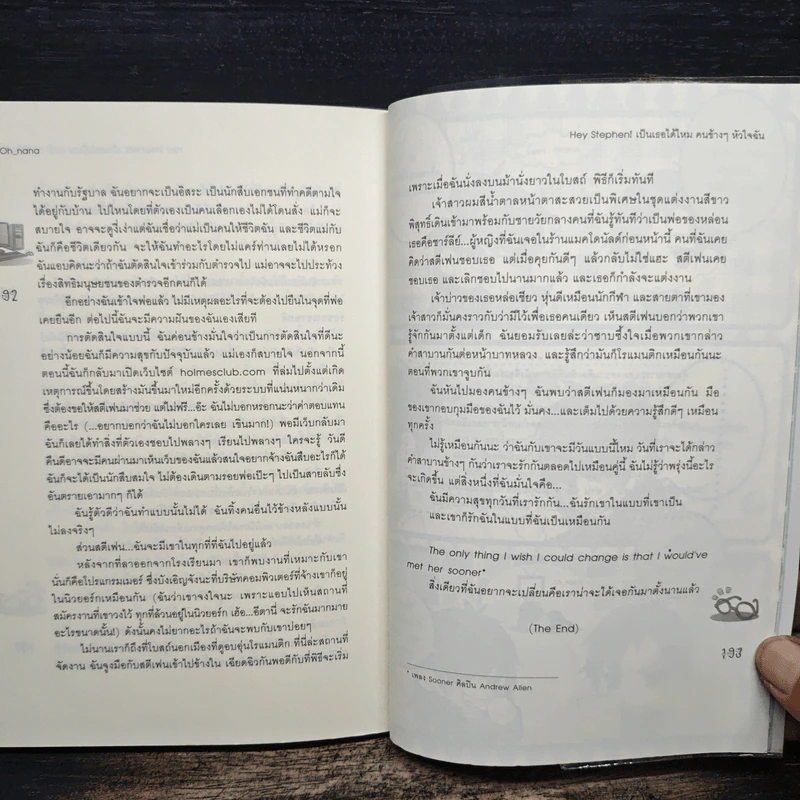 Oh_nana
ทำงานกับรัฐบาล ฉันอยากจะเป็นอิสระ เป็นนักสืบเอกชนที่ทำคดีตามใจ
ได้อยู่กับบ้าน ไปไหนโดยที่ตัวเองเป็นคนเลือกเองไม่ได้โดนสั่ง แม่ก็จะ
สบายใจ อาจจะดูงี่เง่าแต่ฉันเชื่อว่าแม่เป็นคนให้ชีวิตฉัน และชีวิตแม่กับ
ฉันก็คือชีวิตเดียวกัน จะให้ฉันทำอะไรโดยไม่แคร์ท่านเลยไม่ได้หรอก
ฉันแอบคิดนะว่าถ้าฉันตัดสินใจเข้าร่วมกับตำรวจไป แม่อาจจะไปประท้วง
เรื่องสิทธิมนุษยชนของตำรวจอีกคนก็ได้
192
อีกอย่างฉันเข้าใจพ่อแล้ว ไม่มีเหตุผลอะไรที่จะต้องไปยืนในจุดที่พ่อ
เคยยืนอีก ต่อไปนี้ฉันจะมีความฝันของฉันเองเสียที
การตัดสินใจแบบนี้ ฉันค่อนข้างมั่นใจว่าเป็นการตัดสินใจที่ดีนะ
อย่างน้อยฉันก็มีความสุขกับปัจจุบันแล้ว แม่เองก็สบายใจ นอกจากนี้
ตอนนี้ฉันก็กลับมาเปิดเว็บไซต์ holmesclub.com ที่ล่มไปตั้งแต่เกิด
เหตุการณ์ขึ้นโดยสร้างมันขึ้นมาใหม่อีกครั้งด้วยระบบที่แน่นหนากว่าเดิม
ซึ่งต้องขอให้สตีเฟนมาช่วย แต่ไม่ฟรี...อ๊ะ ฉันไม่บอกหรอกนะว่าค่าตอบแทน
คืออะไร (...อยากบอกว่าฉันไม่บอกใครเลย เขินมาก!) พอมีเว็บกลับมา
ฉันก็เลยได้ทำสิ่งที่ตัวเองชอบไปพลางๆ เรียนไปพลางๆ ใครจะรู้ วันดี
คืนดีอาจจะมีคนผ่านมาเห็นเว็บของฉันแล้วสนใจอยากจ้างฉันสืบอะไรก็ได้
ฉันก็จะได้เป็นนักสืบสมใจ ไม่ต้องเดินตามรอยพ่อเป๊ะๆ ไปเป็นสายลับซึ่ง
อันตรายเอามากๆ ก็ได้
ฉันรู้ตัวดีว่าฉันทำแบบนั้นไม่ได้ ฉันทิ้งคนอื่นไว้ข้างหลังแบบนั้น
ไม่ลงจริงๆ
ส่วนสตีเฟน...ฉันจะมีเขาในทุกที่ที่ฉันไปอยู่แล้ว
หลังจากที่ลาออกจากโรงเรียนมา เขาก็พบงานที่เหมาะกับเขา
นั่นก็คือโปรแกรมเมอร์ ซึ่งบังเอิญจังนะที่บริษัทคอมพิวเตอร์ที่จ้างเขาก็อยู่
ในนิวยอร์กเหมือนกัน (ฉันว่าเขาจงใจนะ เพราะแอบไปเห็นสถานที่
สมัครงานที่เขาวงไว้ ทุกที่ล้วนอยู่ในนิวยอร์ก เฮ้อ...อีตานี่ จะรักฉันมากมาย
อะไรขนาดนั้น!) ดังนั้นคงไม่ยากอะไรถ้าฉันจะพบกับเขาบ่อยๆ
ไม่นานเราก็ถึงที่โบสถ์นอกเมืองที่ดูอบอุ่นโรแมนติก ที่นี่ล่ะสถานที่
จัดงาน ฉันจูงมือกับสตีเฟนเข้าไปข้างใน เฉียดฉิวกันพอดีกับที่พิธีจะเริ่ม
Hey Stephen! เป็นเธอได้ไหม คนข้างๆ หัวใจฉัน
เพราะเมื่อฉันนั่งลงบนม้านั่งยาวในโบสถ์ พิธีก็เริ่มทันที
เจ้าสาวผมสีน้ำตาลหน้าตาสะสวยเป็นพิเศษในชุดแต่งงานสีขาว
พิสุทธิ์เดินเข้ามาพร้อมกับชายวัยกลางคนที่ฉันรู้ทันทีว่าเป็นพ่อของหล่อน
เธอคือชาร์ลีย์...ผู้หญิงที่ฉันเจอในร้านแมคโดนัลด์ก่อนหน้านี้ คนที่ฉันเคย
คิดว่าสตีเฟนชอบเธอ แต่เมื่อคุยกันดีๆ แล้วกลับไม่ใช่แฮะ สตีเฟนเคย
ชอบเธอ และเลิกชอบไปนานมากแล้ว และเธอก็กำลังจะแต่งงาน
เจ้าบ่าวของเธอหล่อเชียว หุ่นดีเหมือนนักกีฬา และสายตาที่เขามอง
เจ้าสาวก็มั่นคงราวกับว่ามีไว้เพื่อเธอคนเดียว เห็นสตีเฟนบอกว่าพวกเขา
รู้จักกันมาตั้งแต่เด็ก ฉันยอมรับเลยล่ะว่าซาบซึ้งใจเมื่อพวกเขากล่าว
คำสาบานกันต่อหน้าบาทหลวง และรู้สึกว่ามันก็โรแมนติกเหมือนกันนะ
ตอนที่พวกเขาจูบกัน
ฉันหันไปมองคนข้างๆ ฉันพบว่าสตีเฟนก็มองมาเหมือนกัน มือ
ของเขากอบกุมมือของฉันไว้ มั่นคง...และเต็มไปด้วยความรู้สึกดีๆ เหมือน
ทุกครั้ง
ไม่รู้เหมือนกันนะ ว่าฉันกับเขาจะมีวันแบบนี้ไหม วันที่เราจะได้กล่าว
คำสาบานข้างๆ กันว่าเราจะรักกันตลอดไปเหมือนคู่นี้ ฉันไม่รู้ว่าพรุ่งนี้อะไร
จะเกิดขึ้น แต่สิ่งหนึ่งที่ฉันมั่นใจคือ...
ฉันมีความสุขทุกวันที่เรารักกัน...ฉันรักเขาในแบบที่เขาเป็น
และเขาก็รักฉันในแบบที่ฉันเป็นเหมือนกัน
The only thing I wish I could change is that I would've
met her sooner*
สิ่งเดียวที่ฉันอยากจะเปลี่ยนคือเราน่าจะได้เจอกันมาตั้งนานแล้ว
(The End)
193
* เพลง Sooner ศิลปิน Andrew Allen